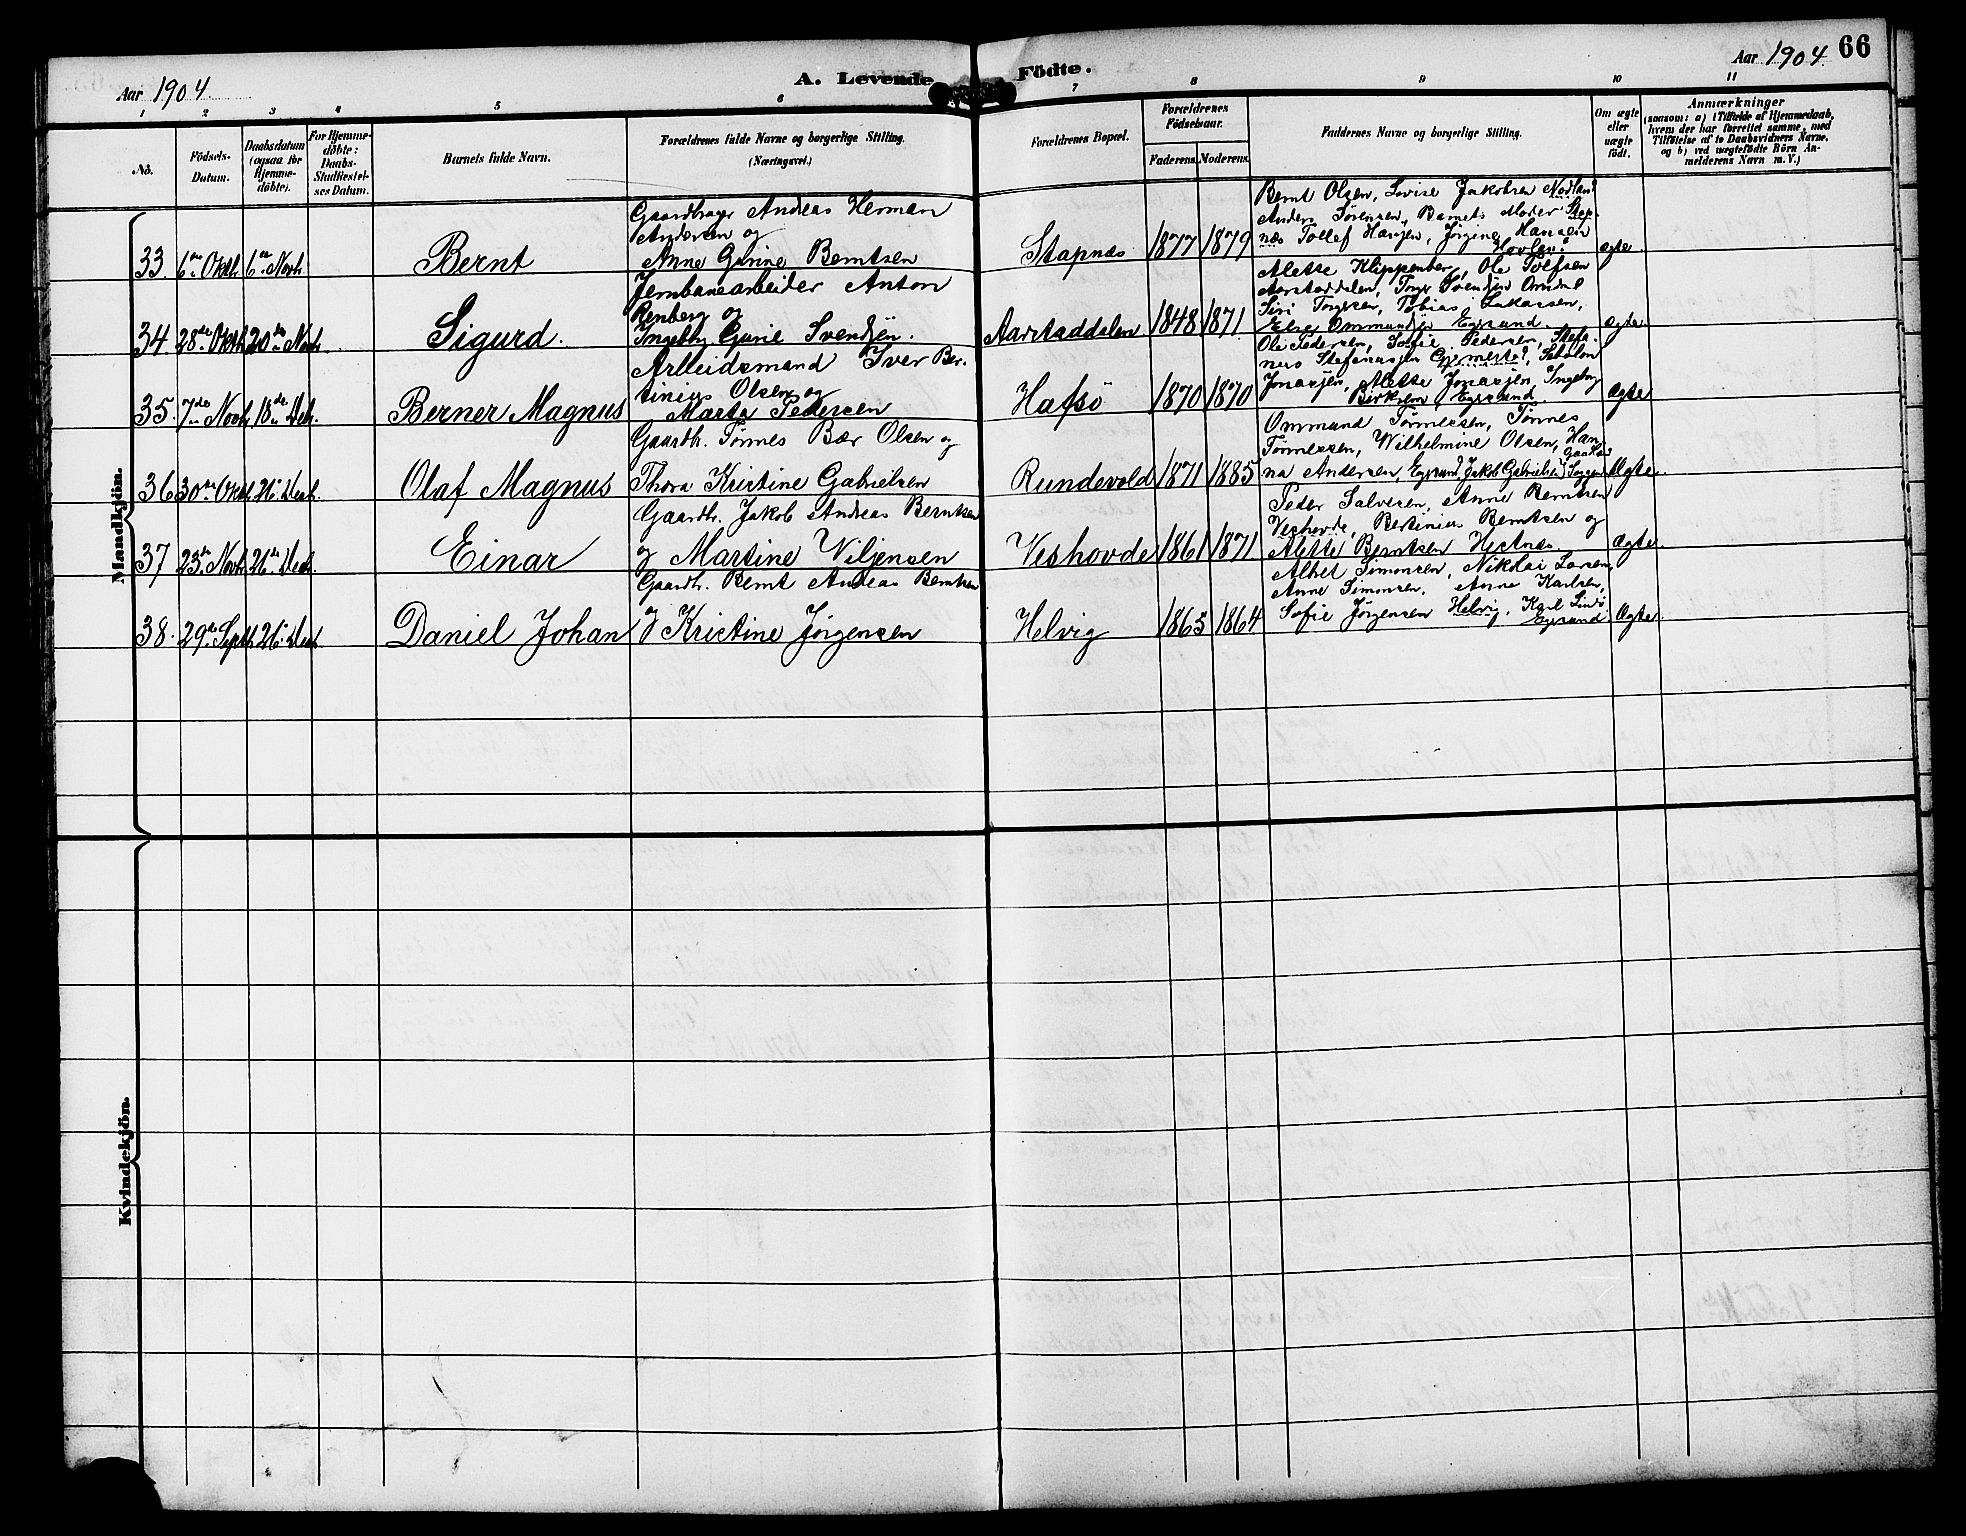 Aar 1904
A. Levende Födte.
Aar 1904. 66
1 2 3 4 5 6 7 8 9 10 11
No.
Födsels-Datum.
Daabsdatum (ogsaa for Hjemme-döbte).
For Hjemme-döbte: Daabs-Stadfæstel-ses Datum.
Barnets fulde Navn.
Forældrenes fulde Navne og borgerlige Stilling.
(Næringsvei.)
Forældrenes Bopæl.
Forældrenes Födselsaar.
Faderens. Moderens.
Faddernes Navne og borgerlige Stilling.
Om ægte eller uægte födt.
Anmærkninger
(saasom: a) i Tilfælde af Hjemmedaab,
hvem der har forrettet samme, med
Tilföielse af to Daabsvidners Navne,
og b) ved uægtefödte Börn An-
melderens Navn m. V.)
Mandkjön.
33 6te Oktb. 6te Novb. Bernt
Gaardbruger Andreas Herman
Andersen og
Anne Gurine Berntsen
Stapnæs 1877 1879
Bernt Olsen, Lovise Jakobsen
Anders Sørensen, Barnets Moder Stap-
næs Tollef Hansen, Jørgine Hansen
ægte
34. 28de Oktb. 20de Novb. Sigurd.
Jernbanearbeider Anton
Renberg og
Ingeborg Gurie Svendsen.
Aarstaddalen 1848 1871
Alette Klippenberg, Ole Tolfsen
Aarstaddalen, Svendsen Omdal
Siri Tørresen, Tobias
Else Ommundsen Egrsund.
Ægte
35. 7de Novb. 18de Decb. Berner Magnus
Arbeidsmand Iver Ber-
tinius Olsen og
Marta Pedersen
Hafsö 1870 1870
Ole Pedersen, Sofie Pedersen, Stefa-
nus Stefanussen
Jonassen, Alette Jonassen, Ingeborg
Birkrem Egrsund.
Ægte
36 30te Oktb. 26. Decb. Olaf Magnus
Gaardbr. Tønnes Bær Olsen og
Thora Kristine Gabrielsen
Rundevold 1871 1885
Ommund Tønnessen, Tønnes
Tønnessen, Wilhelmine Olsen, Han-
na Andersen, Egrsund, Jakob Gabrielsen
Ægte.
37 23de Novb. 26de Decb. Einar
Gaardbr. Jakob Andreas Berntsen
og Martine Viljensen
Veshovde 1861 1871
Peder Salvesen, Anne Berntsen
Veshovde, Bertinius Berntsen og
Alette Berntsen Hestnæs.
Ægte.
38. 29de Septb. 26. Decb. Daniel Johan
Gaardbr. Bernt Andreas Berntsen
og Kristine Jørgensen
Helvig 1863 1864
Albet Simonsen, Nikolai Larsen,
Anne Simonsen, Anne Karlsen,
Sofie Jørgensen Helvig, Karl Lindö
Egrsund
Ægte.
Kvindekjön.